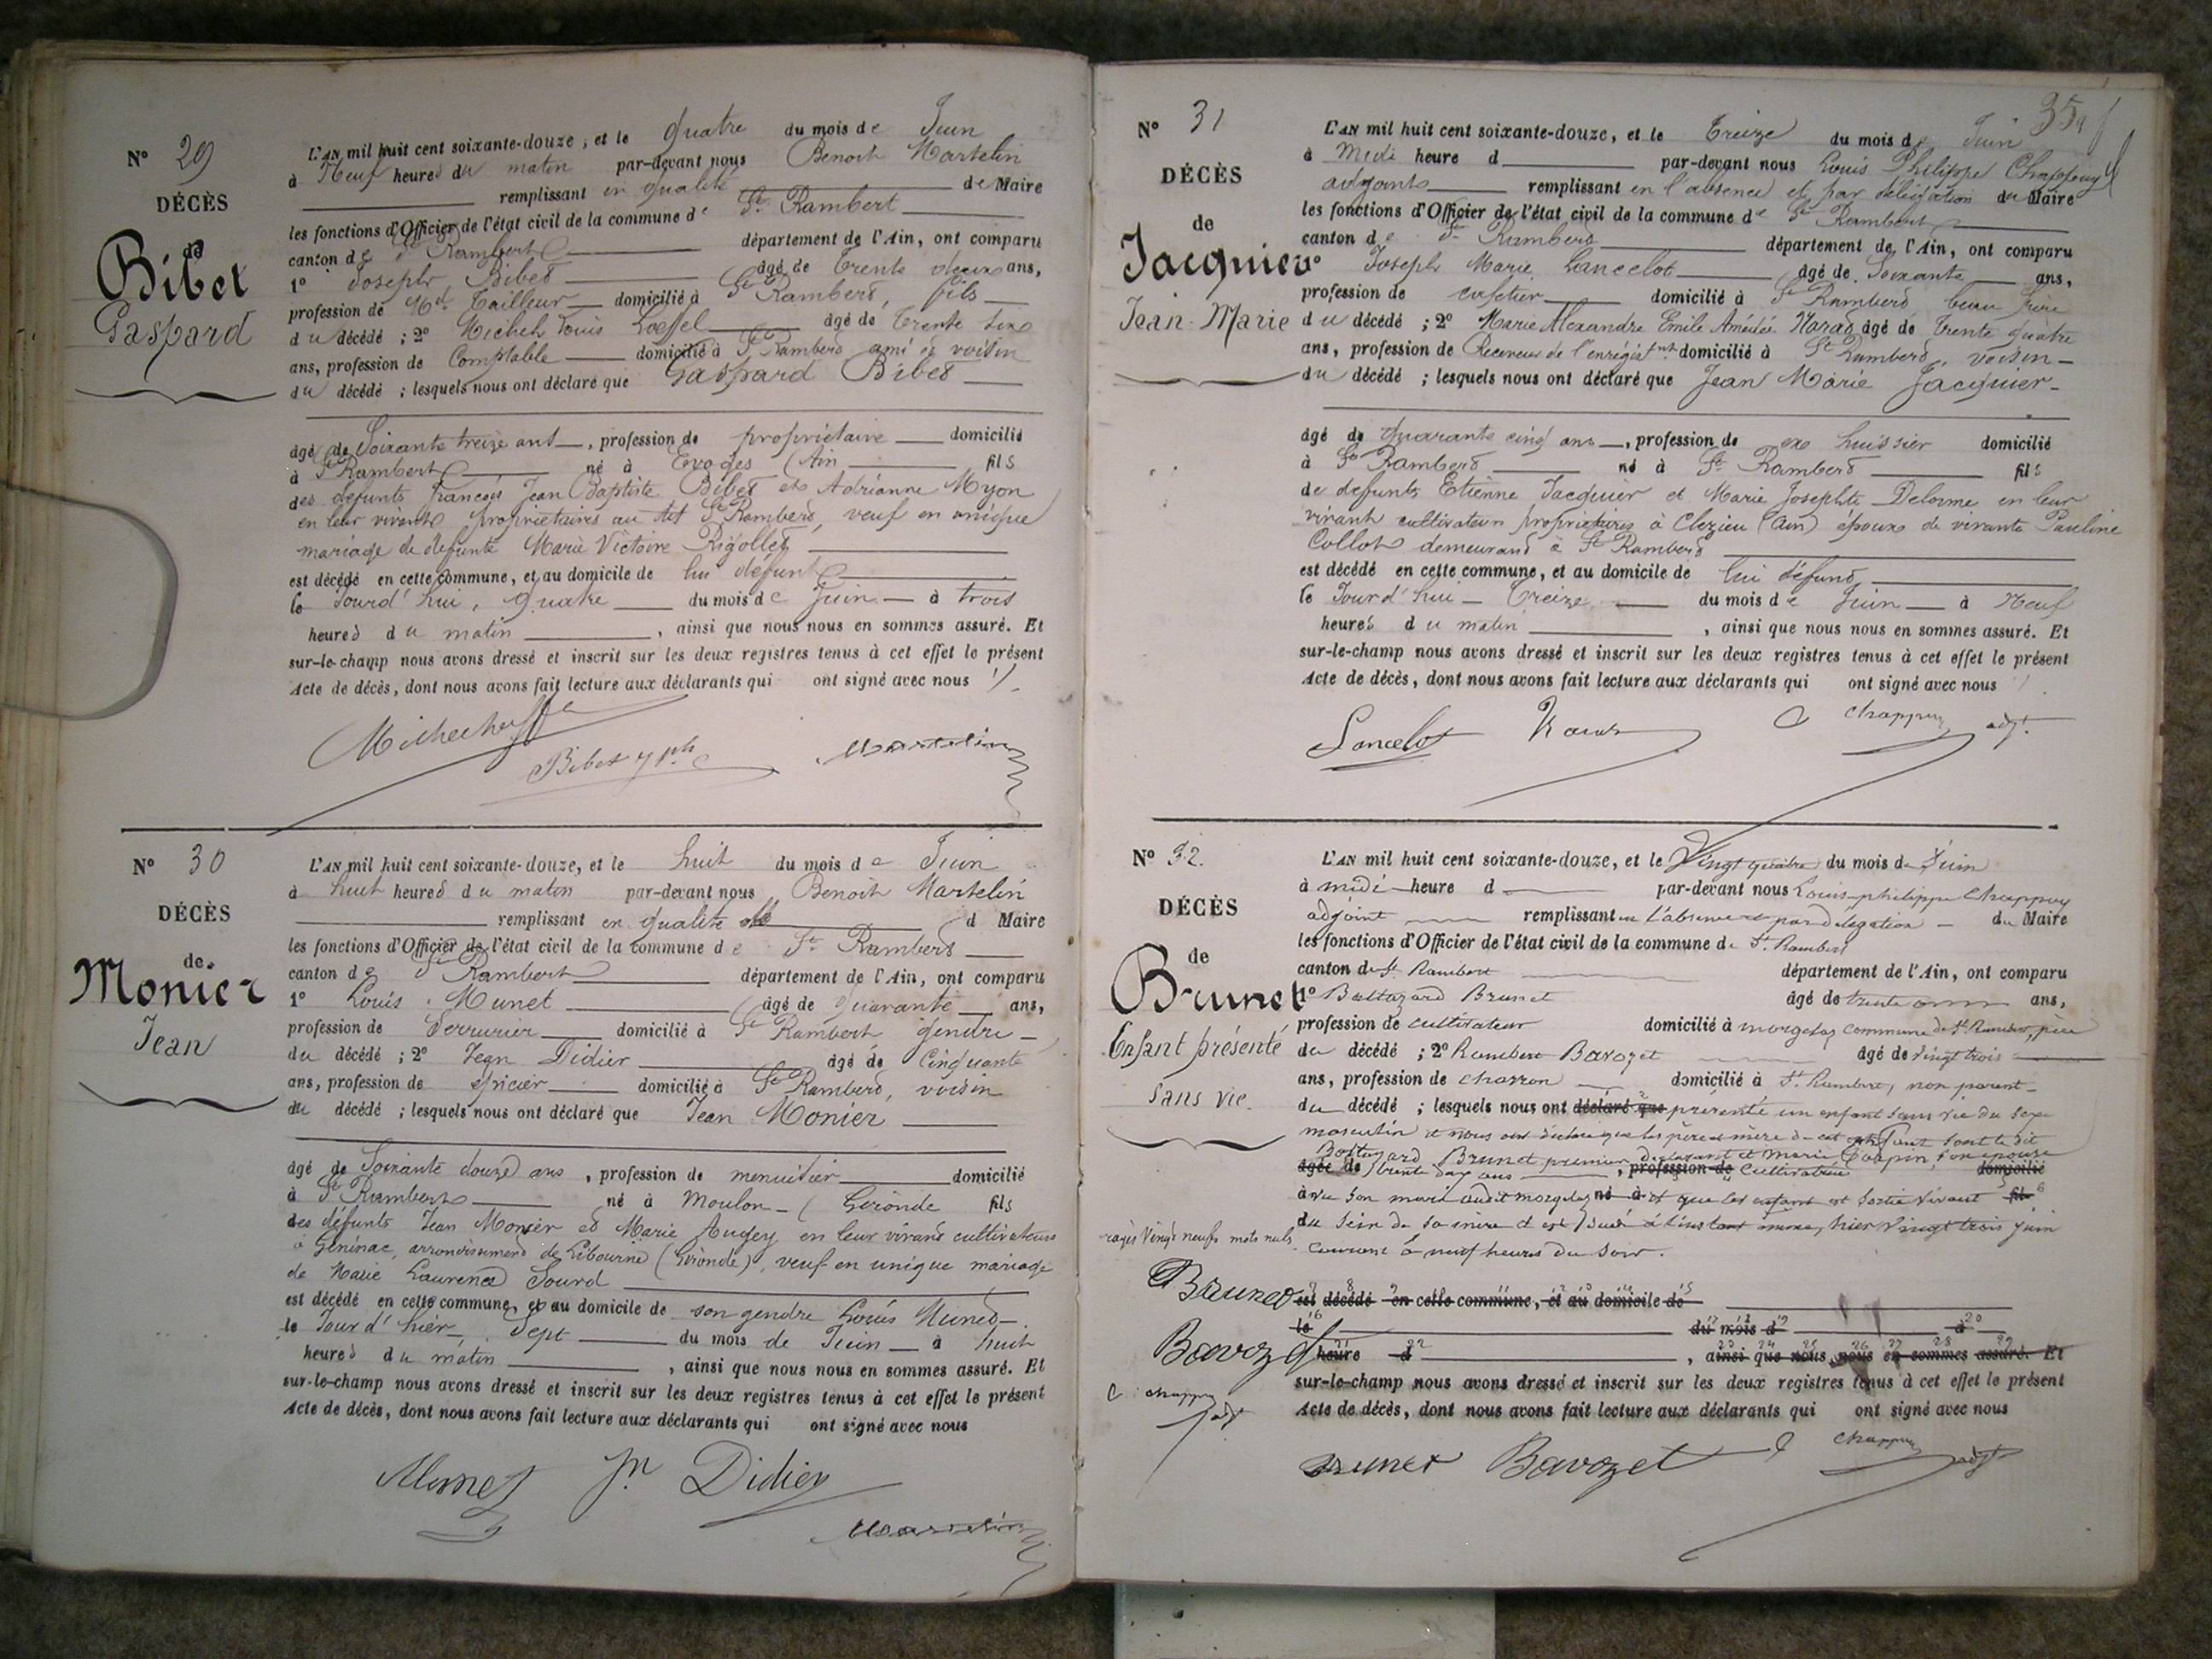 N° 29
DÉCÈS
de
Bibet
Gaspard
L'AN mil huit cent soixante-douze, et le quatre du mois de Juin
à Neuf heures du matin par-devant nous Benoit Martelin
remplissant en qualité de Maire
les fonctions d'Officier de l'état civil de la commune de St Rambert
canton de St Rambert département de l'Ain, ont comparu
1° Joseph Bibet âgé de trente deux ans,
profession de Md Tailleur domicilié à St Rambert, fils
du décédé ; 2° Michel Louis Loeffel âgé de trente six
ans, profession de Comptable domicilié à St Rambert ami et voisin
du décédé ; lesquels nous ont déclaré que Gaspard Bibet
âgé de Soixante treize ans, profession de propriétaire domicilié
à St Rambert né à Evoges (Ain fils
des defunts François Jean Baptiste Bibet et Adrianne Myon
en leur vivants propriétaires au dit St Rambert, veuf en unique
mariage de defunte Marie Victoire Rigollet
est décédé en cette commune, et au domicile de lui defunt
le Jourd'hui, quatre du mois de Juin à trois
heures du matin, ainsi que nous nous en sommes assuré. Et
sur-le-champ nous avons dressé et inscrit sur les deux registres tenus à cet effet le présent
Acte de décès, dont nous avons fait lecture aux déclarants qui ont signé avec nous
Bibet Jph Martelin
N° 30
DÉCÈS
de
Monier
Jean
L'AN mil huit cent soixante-douze, et le huit du mois de Juin
à huit heures du matin par-devant nous Benoit Martelin
remplissant en qualité d Maire
les fonctions d'Officier de l'état civil de la commune de St Rambert
canton de St Rambert département de l'Ain, ont comparu
1° Louis Munet âgé de quarante ans,
profession de Serrurier domicilié à St Rambert gendre
du décédé ; 2° Jean Didier âgé de Cinquante
ans, profession de épicier domicilié à St Rambert, voisin
du décédé ; lesquels nous ont déclaré que Jean Monier
âgé de Soixante douze ans, profession de menuisier domicilié
à St Rambert né à Moulon (Gironde fils
des défunts Jean Monier et Marie Augey en leur vivant cultivateurs
à Géninac, arrondissement de Libourne (Gironde), veuf en unique mariage
de Marie Laurence Sourd
est décédé en cette commune, et au domicile de son gendre Louis Munet
le Jour d'hier, Sept du mois de Juin à huit
heures du matin, ainsi que nous nous en sommes assuré. Et
sur-le-champ nous avons dressé et inscrit sur les deux registres tenus à cet effet le présent
Acte de décès, dont nous avons fait lecture aux déclarants qui ont signé avec nous
Jn Didier
Martelin
35
N° 31
DÉCÈS
de
Jacquier
Jean-Marie
L'AN mil huit cent soixante-douze, et le treize du mois de Juin
à Midi heure d par-devant nous Louis Philippe Chappuy
adjoint remplissant en l'absence et par délégation du Maire
les fonctions d'Officier de l'état civil de la commune de St Rambert
canton de St Rambert département de l'Ain, ont comparu
1° Joseph Marie Lancelot âgé de Soixante ans,
profession de cafetier domicilié à St Rambert beau frère
du décédé ; 2° Marie Alexandre Emile Amédée âgé de trente quatre
ans, profession de Receveur de l'enregistnt domicilié à St Rambert, voisin
du décédé ; lesquels nous ont déclaré que Jean Marie Jacquier
âgé de quarante cinq ans, profession de exe huissier domicilié
à St Rambert né à St Rambert fils
de defunts Etienne Jacquier et Marie Josephte Delorme en leur
vivant cultivateurs propriétaires à Clezieu (Ain) époux de vivante Pauline
Collot demeurant à St Rambert
est décédé en cette commune, et au domicile de lui défunt
le Jourd'hui treize du mois de Juin à Neuf
heures du matin, ainsi que nous nous en sommes assuré. Et
sur-le-champ nous avons dressé et inscrit sur les deux registres tenus à cet effet le présent
Acte de décès, dont nous avons fait lecture aux déclarants qui ont signé avec nous
Lancelot Chappuy adjt
N° 32.
DÉCÈS
de
Brunet
Enfant présenté
sans vie.
L'AN mil huit cent soixante-douze, et le Vingt quatre du mois de Juin
à midi heure d par-devant nous Louis-philippe Chappuy
adjoint remplissant en l'absence et par délégation du Maire
les fonctions d'Officier de l'état civil de la commune de St Rambert
canton de St Rambert département de l'Ain, ont comparu
1° Baltazard Brunet âgé de trente ans,
profession de cultivateur domicilié à morgelas commune de St Rambert, père
du décédé ; 2° Rambert Bavozet âgé de vingt trois
ans, profession de charron domicilié à St Rambert, non parent
du décédé ; lesquels nous ont déclaré que présenté un enfant sans vie du sexe
masculin et nous ont déclaré que les père et mère de cet enfant sont le dit
Baltazard Brunet premier déclarant et Marie son épouse
âgée de trente ans, profession de Cultivatrice domicilié
avec son mari audit morgelas né à et que cet enfant est sortie vivant fils
du sein de sa mère et est à l'instant même, hier vingt trois juin
courant à neuf heures du soir.
rayés Vingt neufs mots nuls.
Brunet est décédé en cette commune, et au domicile de
le du mois d à
Bavozet heure d, ainsi que nous nous en sommes assuré. Et
chappuy adjt
sur-le-champ nous avons dressé et inscrit sur les deux registres tenus à cet effet le présent
Acte de décès, dont nous avons fait lecture aux déclarants qui ont signé avec nous
Brunet Bavozet chappuy adjt